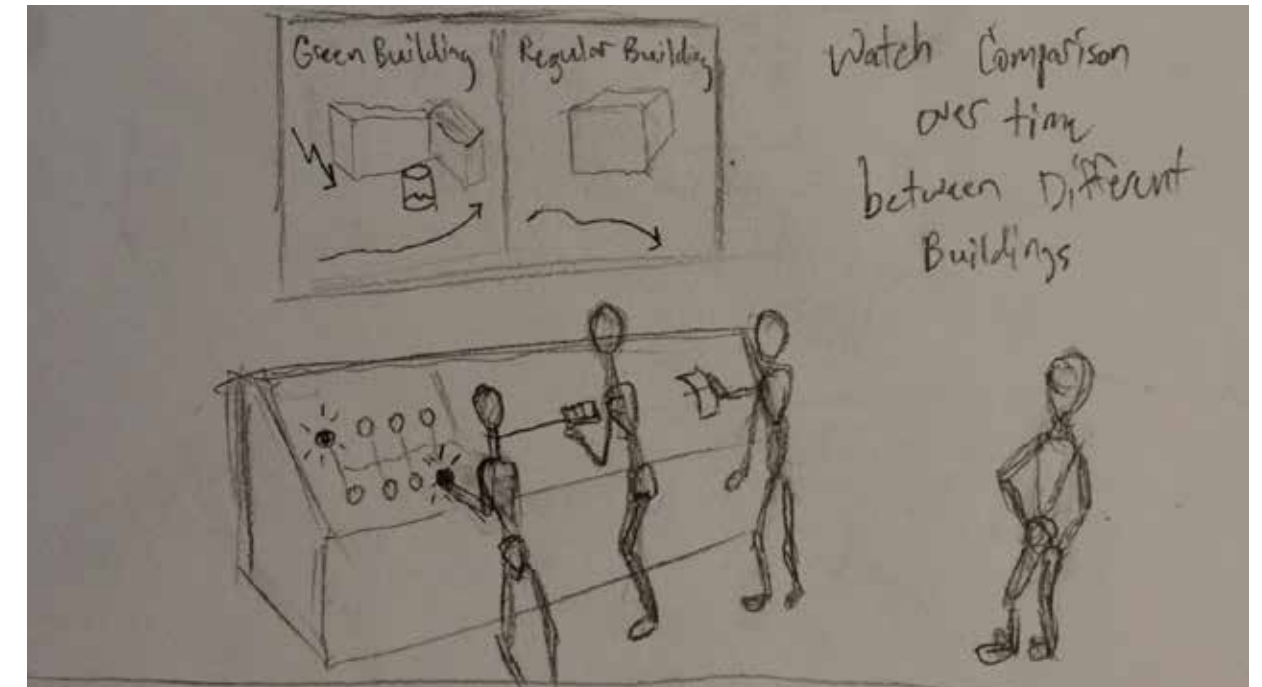 Green Building
Regular Building
Watch Comparison
over time
between Different
Buildings